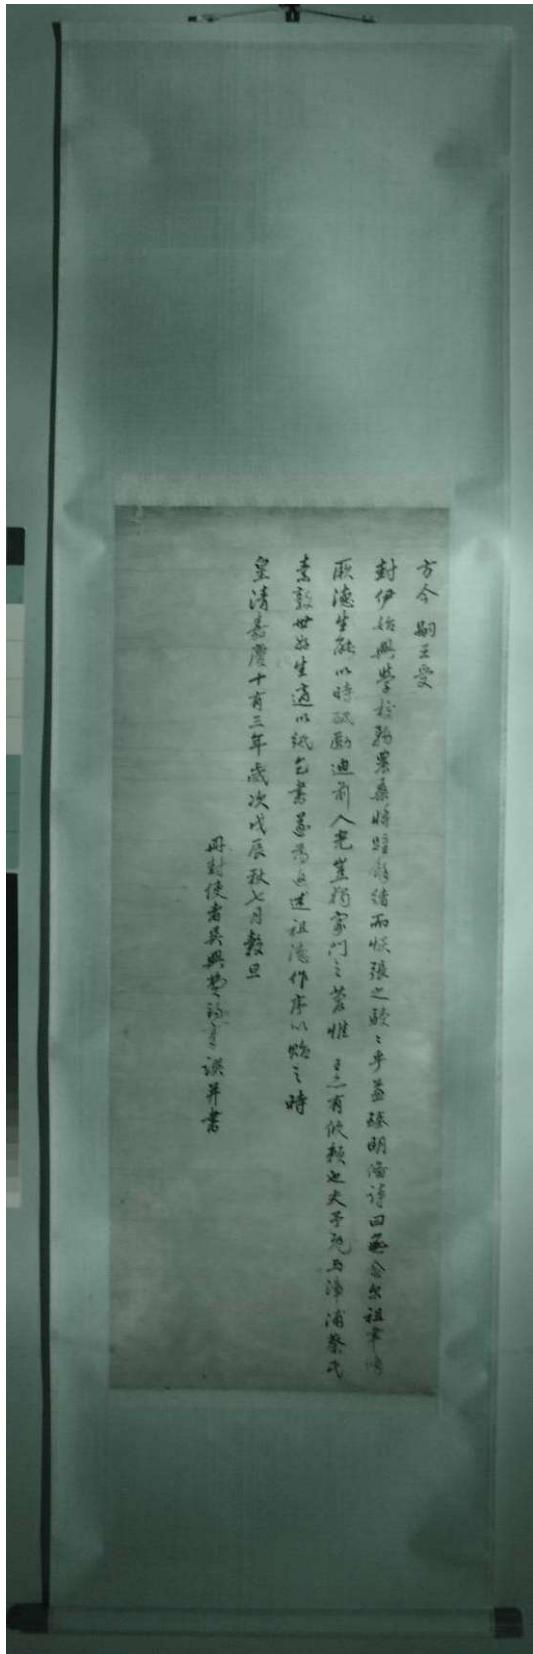 方今 嗣王受
封伊始興學校務農桑將賡餘緒而恢張之駸〻乎益臻明備詩曰無念尔祖聿修
厥德生能以時砥勵迪前人光豈獨家門之慶惟 王亦有攸賴也夫予既与漳浦蔡氏
素敦世好生適以紙乞書遂為追述祖德作序以貽之時
皇清嘉慶十有三年歲次戊辰秋七月穀旦
冊封使者吳興費錫章譔并書